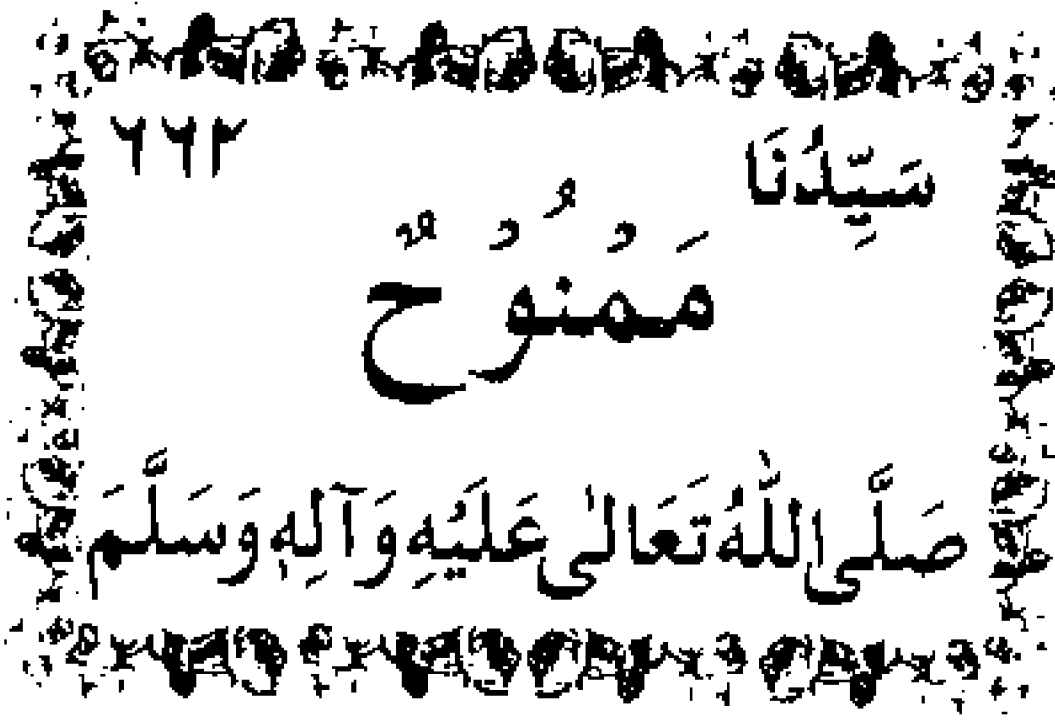 سَيِّدُنَا ٦٦٢
مَمْنُوْحٌ
صَلَّى اللّٰهُ تَعَالٰى عَلَيْهِ وَآلِهٖ وَسَلَّمَ